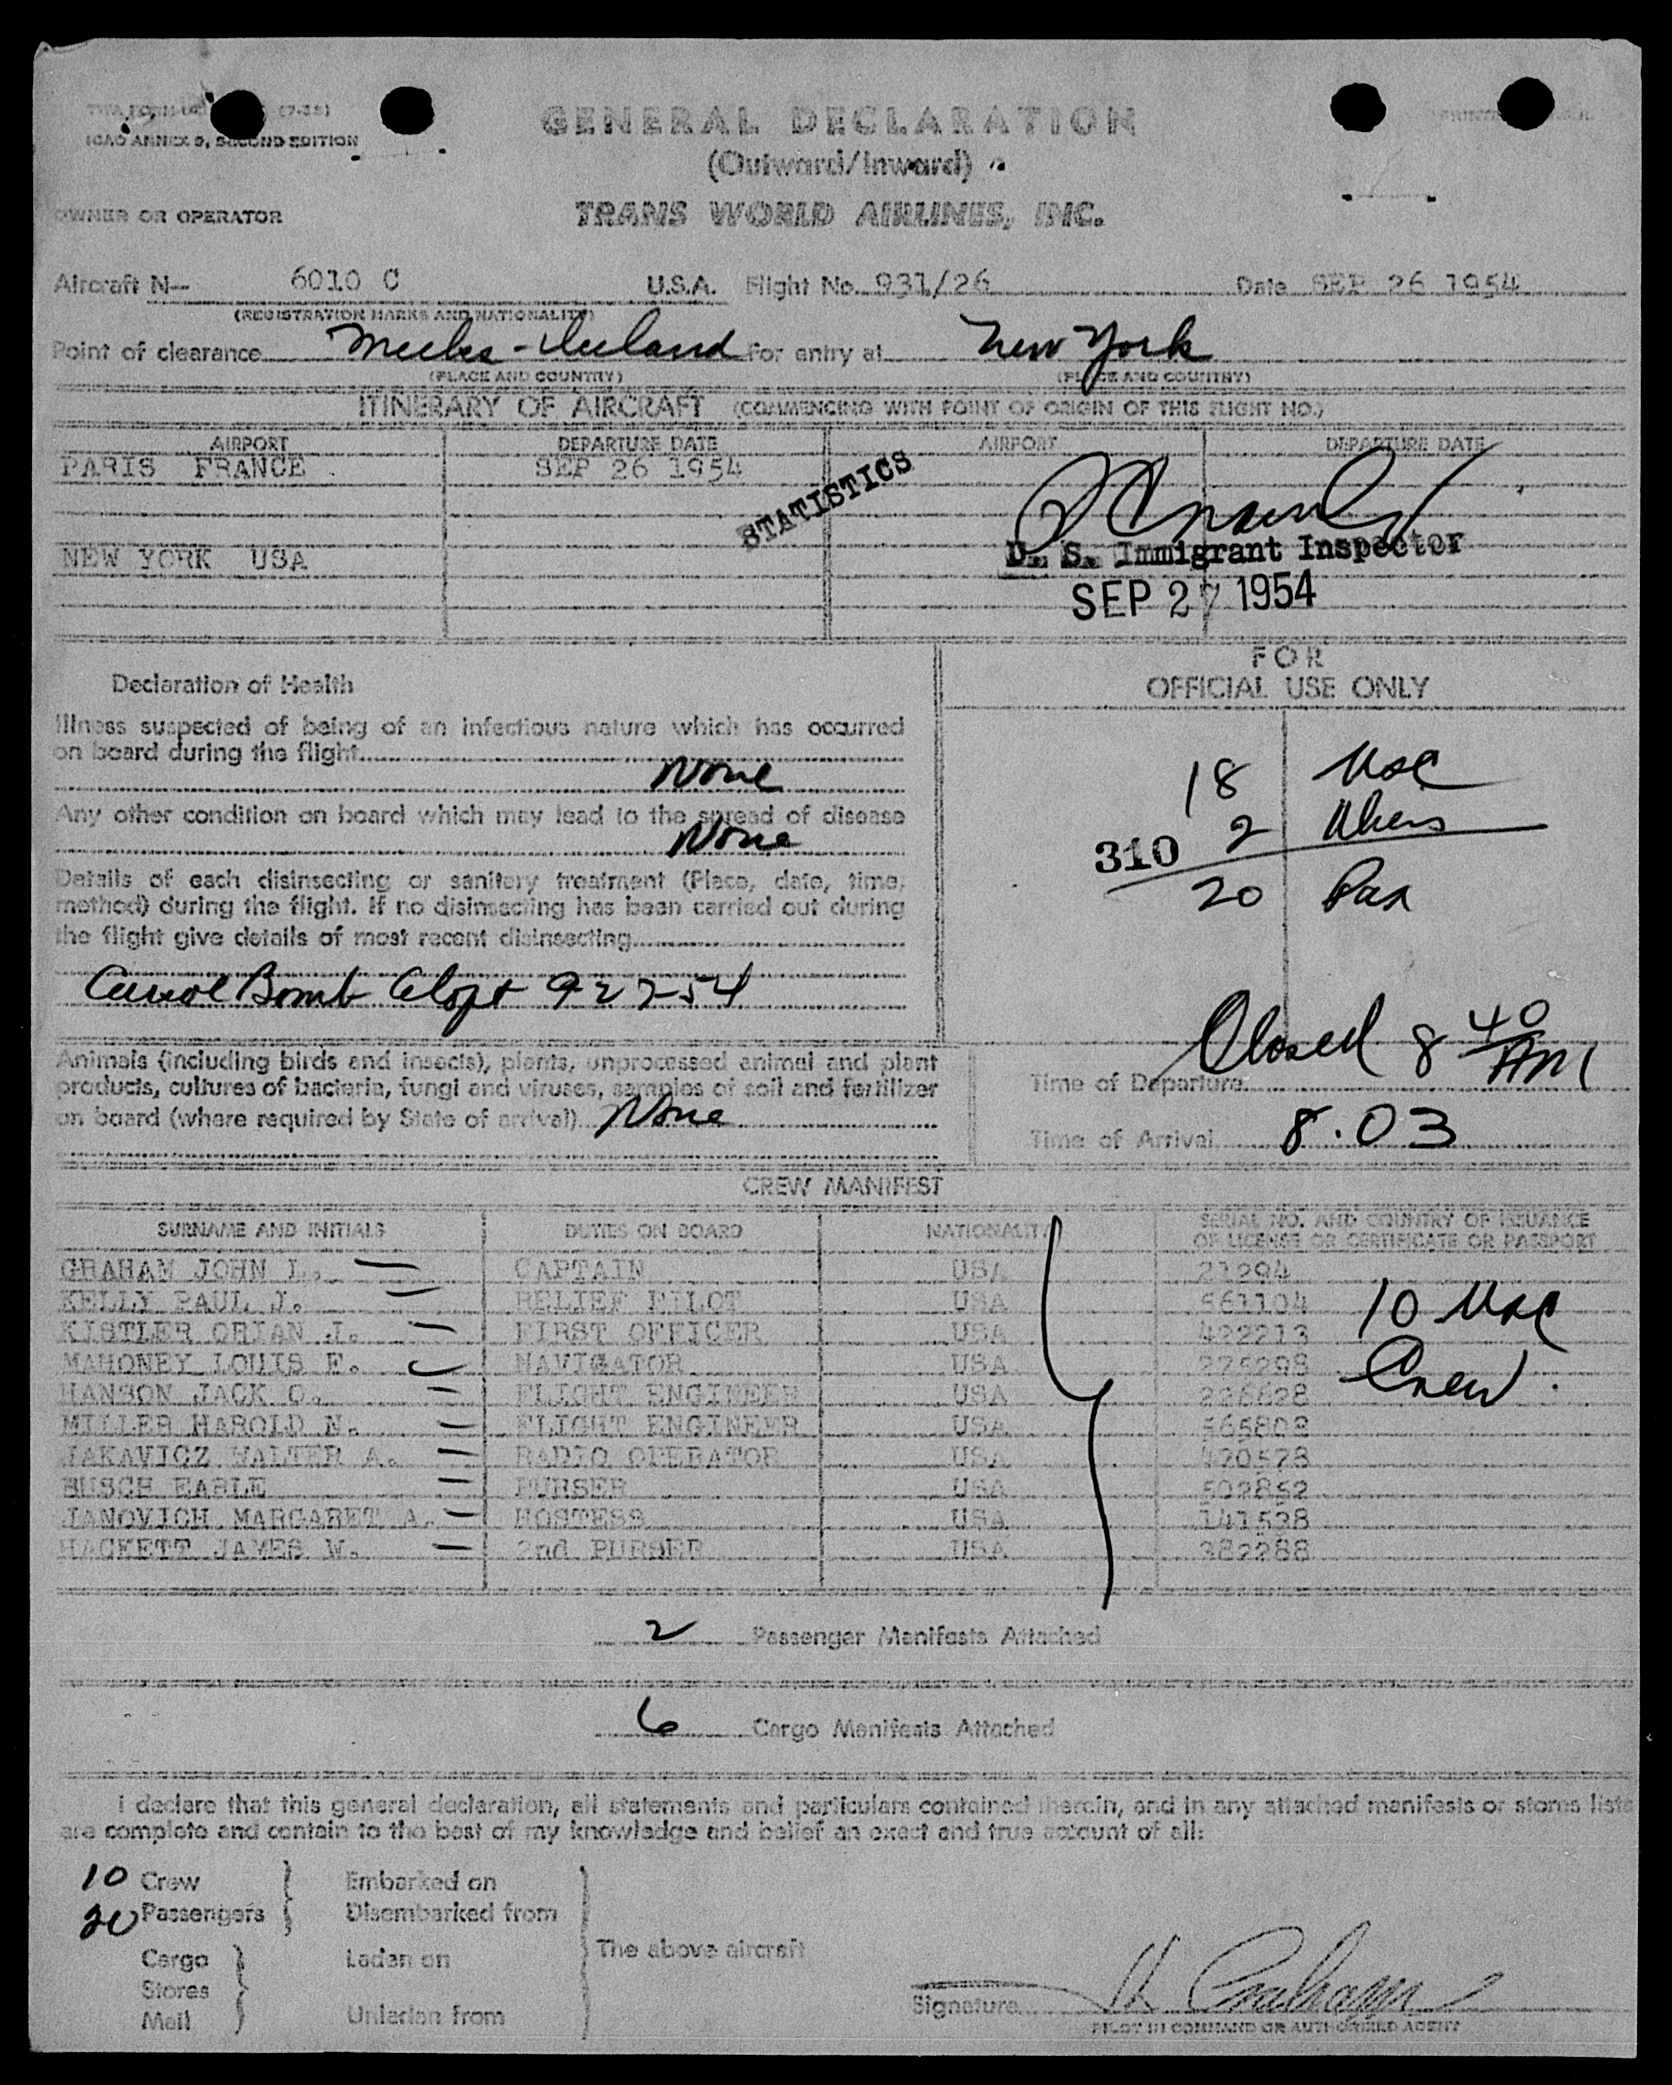 ICAO ANNEX 9, SECOND EDITION
GENERAL DECLARATION
(Outward/Inward)
OWNER OR OPERATOR
TRANS WORLD AIRLINES, INC.
Aircraft N— 6010 C U.S.A. Flight No. 931/26 Date SEP 26 1954
(REGISTRATION MARKS AND NATIONALITY)
Point of clearance Meeks - Iceland For entry at New York
(PLACE AND COUNTRY) (PLACE AND COUNTRY)
ITINERARY OF AIRCRAFT (COMMENCING WITH POINT OF ORIGIN OF THIS FLIGHT NO.)
AIRPORT DEPARTURE DATE AIRPORT DEPARTURE DATE
PARIS FRANCE SEP 26 1954
STATISTICS
U. S. Immigrant Inspector
NEW YORK USA
SEP 27 1954
FOR
OFFICIAL USE ONLY
Declaration of Health
Illness suspected of being of an infectious nature which has occurred
on board during the flight
None
18 USC
Any other condition on board which may lead to the spread of disease
None
2 Aliens
310
20 Pax
Details of each disinsecting or sanitary treatment (Place, date, time,
method) during the flight. If no disinsecting has been carried out during
the flight give details of most recent disinsecting
Bomb 9-27-54
Closed 8 40 AM
Animals (including birds and insects), plants, unprocessed animal and plant
products, cultures of bacteria, fungi and viruses, samples of soil and fertilizer
on board (where required by State of arrival) None
Time of Departure
Time of Arrival 8.03
CREW MANIFEST
SURNAME AND INITIALS DUTIES ON BOARD NATIONALITY SERIAL NO. AND COUNTRY OF ISSUANCE
OF LICENSE OR CERTIFICATE OR PASSPORT
GRAHAM JOHN L. CAPTAIN USA 21294
KELLY PAUL J. RELIEF PILOT USA 561104
KISTLER ORIAN J. FIRST OFFICER USA 422213
MAHONEY LOUIS F. NAVIGATOR USA 275298
HANSON JACK O. FLIGHT ENGINEER USA 226628
MILLER HAROLD N. FLIGHT ENGINEER USA 565808
JAKAVICZ WALTER A. RADIO OPERATOR USA 420528
BUSCH EARLE PURSER USA 502852
JANOVICH MARGARET A. HOSTESS USA 141528
HACKETT JAMES W. 2nd PURSER USA 382288
10 USC
Crew
2 Passenger Manifests Attached
6 Cargo Manifests Attached
I declare that this general declaration, all statements and particulars contained therein, and in any attached manifests or stores lists
are complete and contain to the best of my knowledge and belief an exact and true account of all:
10 Crew Embarked on
20 Passengers Disembarked from
The above aircraft
Cargo Laden on
Stores
Mail Unladen from
Signature Graham
PILOT IN COMMAND OR AUTHORIZED AGENT